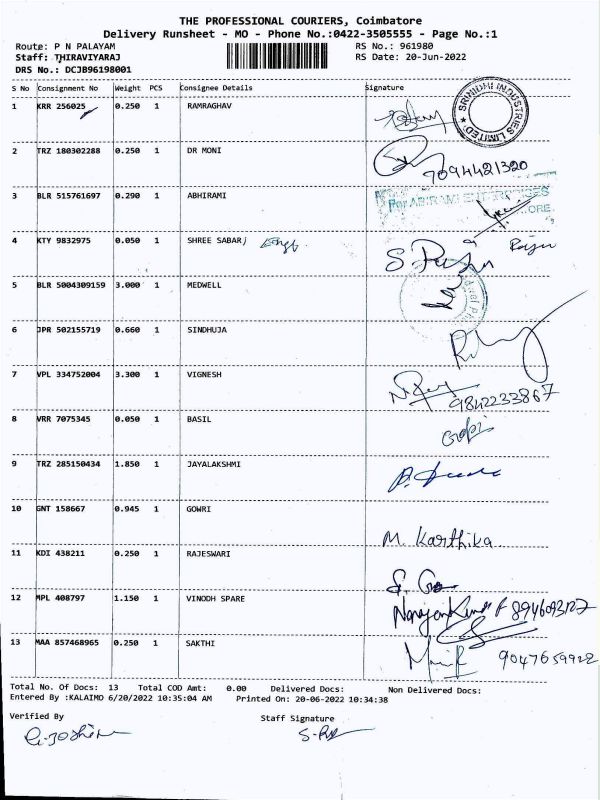 THE PROFESSIONAL COURIERS, Coimbatore
Delivery Runsheet - MO - Phone No.:0422-3505555 - Page No.:1
Route: P N PALAYAM RS No.: 961980
Staff: THIRAVIYARAJ RS Date: 20-Jun-2022
DRS No.: DCJB96198001
S No Consignment No Weight PCS Consignee Details Signature
1 KRR 256025 0.250 1 RAMRAGHAV
SRINIDHI INDUSTRIES LIMITED
2 TRZ 180302288 0.250 1 DR MONI
7094421320
3 BLR 515761697 0.290 1 ABHIRAMI
For ABIRAMI ENTERPRISES
4 KTY 9832975 0.050 1 SHREE SABARI
5 BLR 5004309159 3.000 1 MEDWELL
6 JPR 502155719 0.660 1 SINDHUJA
7 VPL 334752004 3.300 1 VIGNESH
9842233867
8 VRR 7075345 0.050 1 BASIL
Gopi
9 TRZ 285150434 1.850 1 JAYALAKSHMI
10 GNT 158667 0.945 1 GOWRI
M. Karthika
11 KDI 438211 0.250 1 RAJESWARI
12 MPL 408797 1.150 1 VINODH SPARE
13 MAA 857468965 0.250 1 SAKTHI
Total No. Of Docs: 13 Total COD Amt: 0.00 Delivered Docs: Non Delivered Docs:
Entered By :KALAIMO 6/20/2022 10:35:04 AM Printed On: 20-06-2022 10:34:38
Verified By Staff Signature